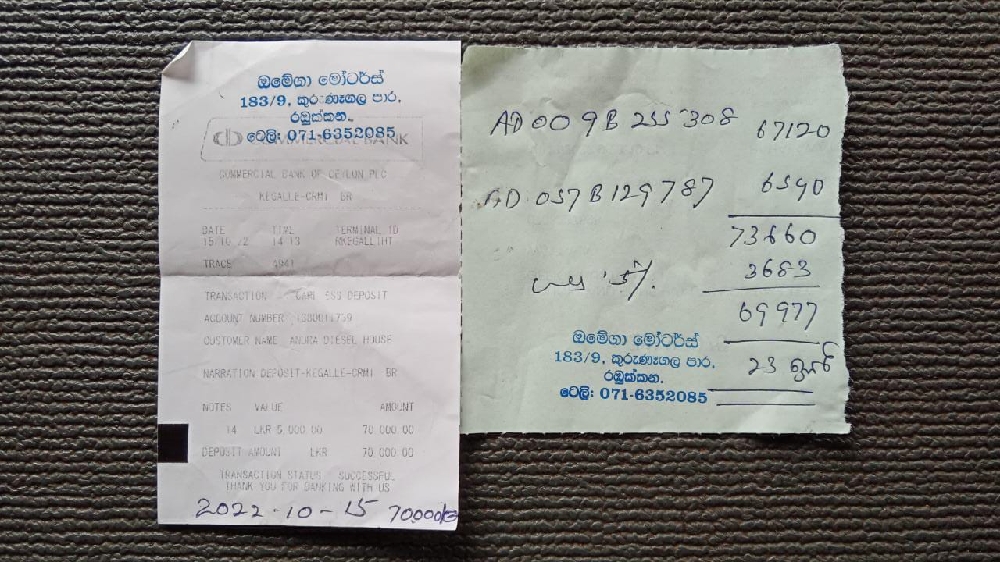 ඔමේගා මෝටර්ස්
183/9, කුරුණෑගල පාර,
රඹුක්කන.
ටෙලි: 071-6352085
COMMERCIAL BANK
COMMERCIAL BANK OF CEYLON PLC
KEGALLE-CRM1 BR
DATE TIME TERMINAL ID
14 13
TRACE
TRANSACTION DEPOSIT
ACCOUNT NUMBER
CUSTOMER NAME ANURA DIESEL HOUSE
NARRATION DEPOSIT-KEGALLE-CRM1 BR
NOTES VALUE AMOUNT
14 LKR 5 000.00 70 000.00
DEPOSIT AMOUNT LKR 70 000.00
TRANSACTION STATUS SUCCESSFUL
THANK YOU FOR BANKING WITH US
2022-10-15 70000/=
AD 00 9B 255 308 67120
AD 057B129787 6540
73660
5% 3683
69977
23
ඔමේගා මෝටර්ස්
183/9, කුරුණෑගල පාර,
රඹුක්කන.
ටෙලි: 071-6352085